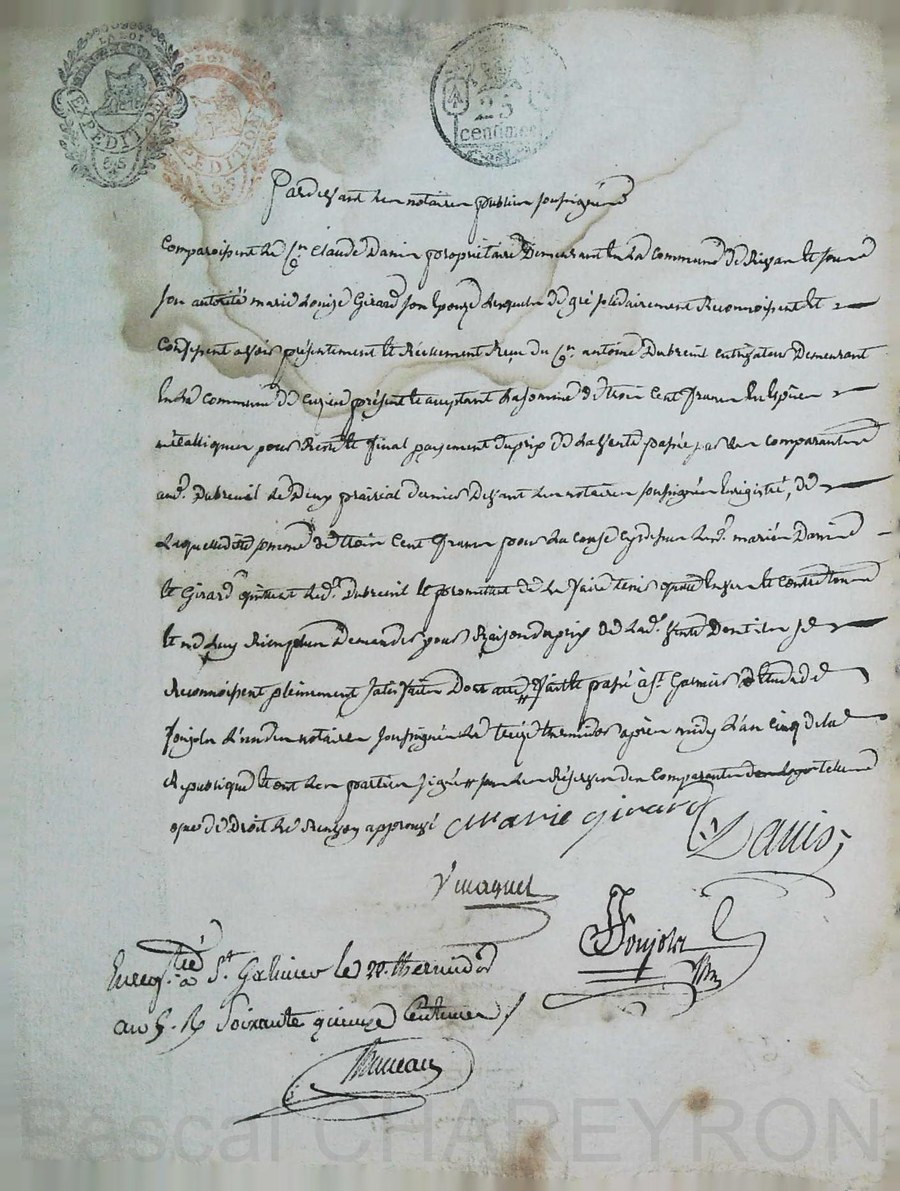 LA LOI
EXPEDITION
LA LOI
EXPEDITION
25
centimes
Pardevant les notaires publics soussignés
Comparoissent le Cn. Claude Danis propriétaire Demeurant En la Commune de et sous
son autorité marie Louize Girard son Epouze Lesquels de gré solidairement Reconnoissent et
Confessent avoir présentement et Réellement Reçu du Cen. antoine Dubreuil Demeurant
En la Commune de présent et acceptant la somme de trois Cent francs En Espèces
métalliques pour Reste et final payement du prix de la vente passée par les Comparants
aud. Dubreuil le Deux prairial dernier Devant les notaires soussignés Enregistré, de
Laquelle somme de trois Cent francs pour la Cause Cydessus Lesd. mariés Danis
et Girard quittent led. Dubreuil et promettent de le faire tenir quitte Envers et Contre tous
et ne luy Rien plus Demander pour Raison du prix de lad. vente Dont ils se
Reconnoissent pleinement satisfaits Dont acte fait et passé à St Galmier Etude de
Jonjolz L'un des notaires soussignés Le treize thermidor après midy L'an Cinq de la
République Et ont les parties signé sous les Réserves des Comparants
que de Droit approuvé marie girard
Danis
Jonjolz
Enregtré à St Galmier le 22 thermidor
an 5. R Soixante quinze Centimes
Pascal CHAREYRON